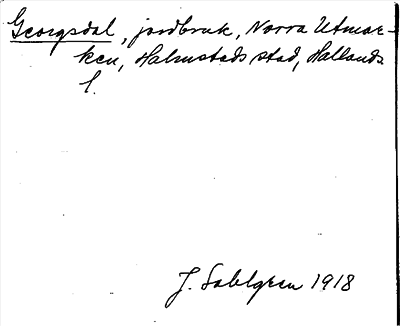 Georgsdal, jordbruk, Norra Utmar-
ken, Halmstads stad, Hallands
l.
J. Sahlgren 1918